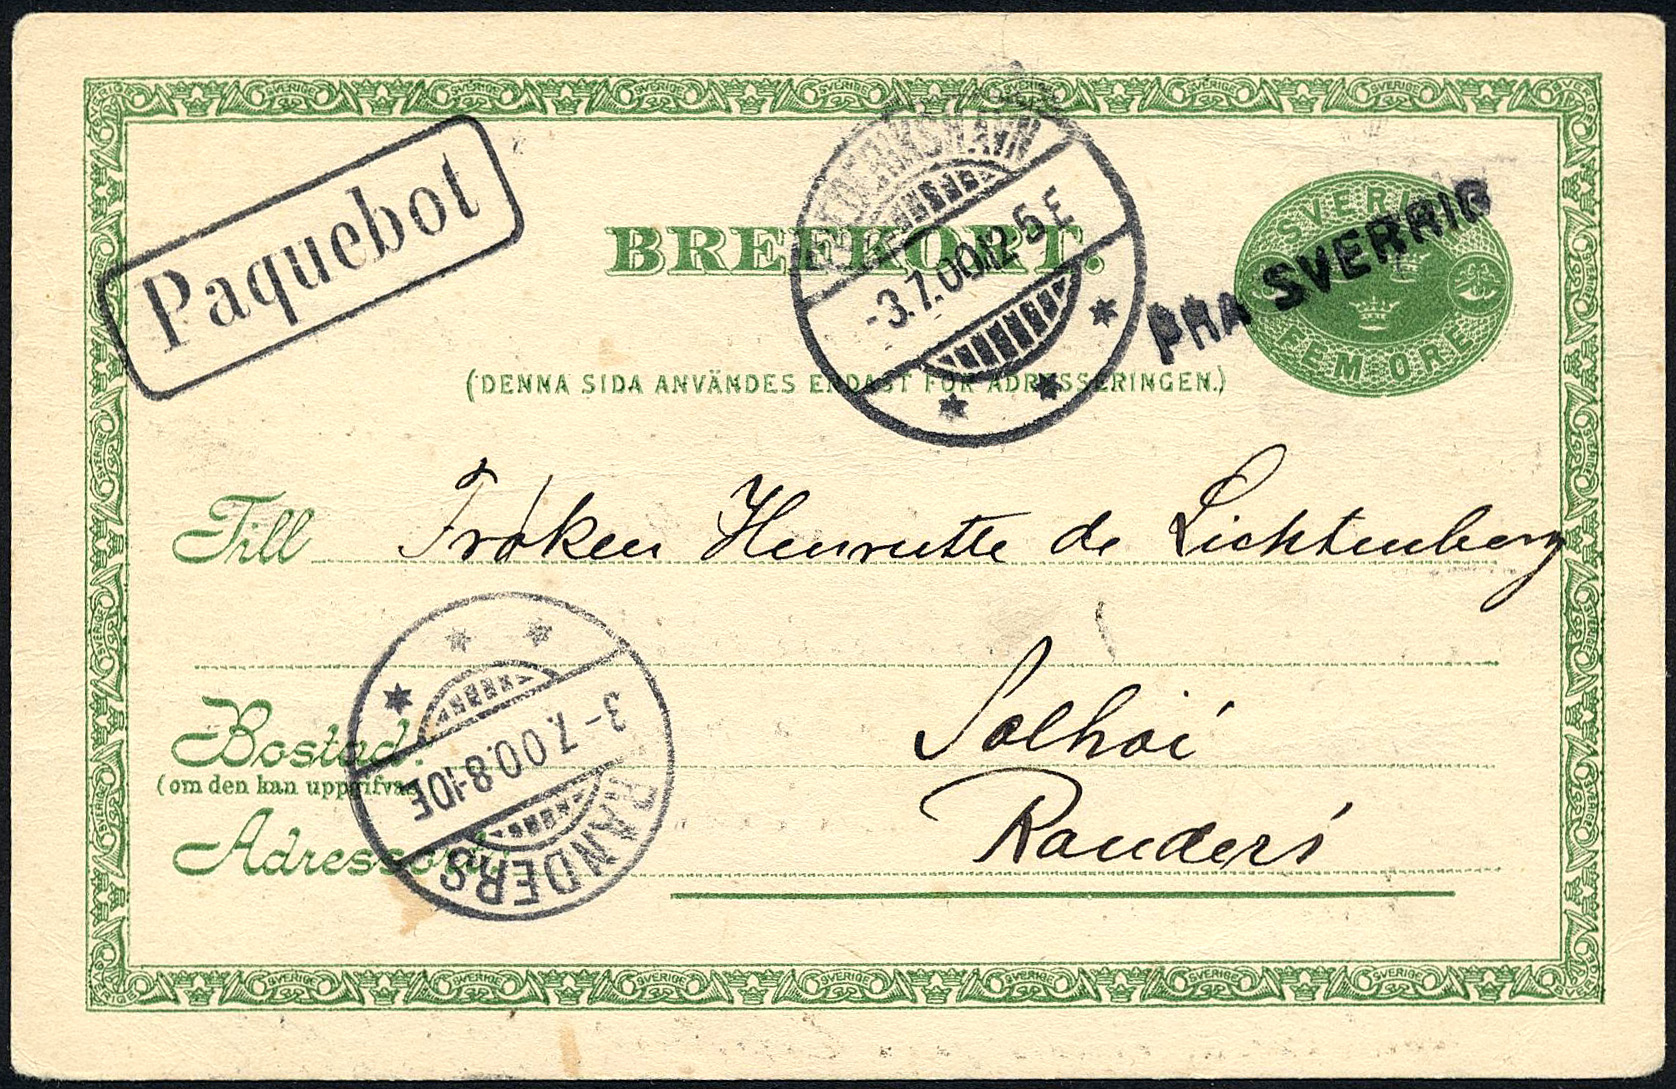 Paquebot
BREFKORT.
FREDERIKSHAVN
-3.7.00.12-5E
SVERIGE
FEM ÖRE
FRA SVERRIG
(DENNA SIDA ANVÄNDES ENDAST FÖR ADRESSERINGEN.)
Till Frøken Henriette de Lichtenberg
Solhøi
Bostad:
(om den kan uppgifvas)
Randers
Adressort:
RANDERS
3-7.00.8-10E